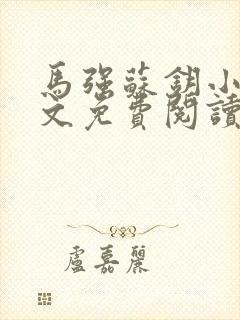 馬強蘇鈅小
文免費閱讀
盧嘉麗